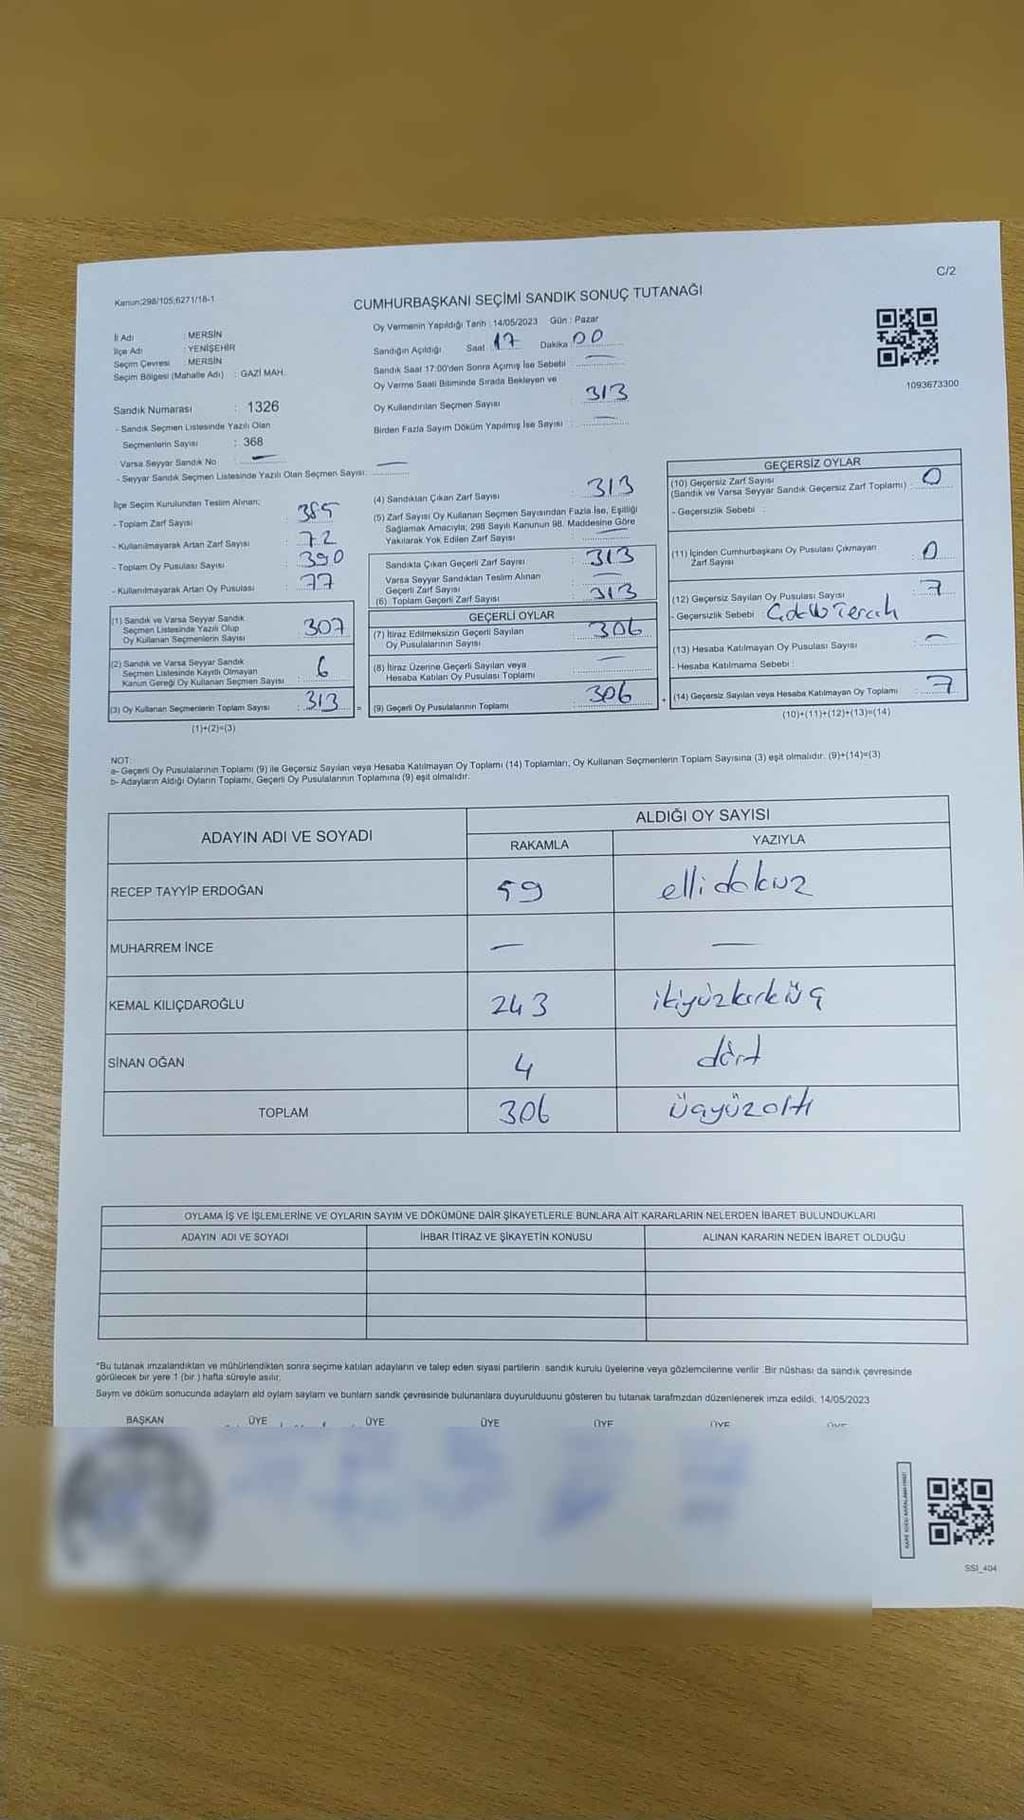 C/2
Kanun;298/105,6271/18-1
CUMHURBAŞKANI SEÇİMİ SANDIK SONUÇ TUTANAĞI
İl Adı : MERSİN
İlçe Adı : YENİŞEHİR
Seçim Çevresi : MERSİN
Seçim Bölgesi (Mahalle Adı) : GAZİ MAH.
Sandık Numarası : 1326
- Sandık Seçmen Listesinde Yazılı Olan
Seçmenlerin Sayısı : 368
Varsa Seyyar Sandık No —
- Seyyar Sandık Seçmen Listesinde Yazılı Olan Seçmen Sayısı: —
Oy Vermenin Yapıldığı Tarih : 14/05/2023 Gün : Pazar
Sandığın Açıldığı Saat 17 Dakika 00
Sandık Saat 17:00'den Sonra Açımış İse Sebebi —
Oy Verme Saati Bitiminde Sırada Bekleyen ve
Oy Kullandırılan Seçmen Sayısı 313
Birden Fazla Sayım Döküm Yapılmış İse Sayısı : —
1093673300
İlçe Seçim Kurulundan Teslim Alınan;
- Toplam Zarf Sayısı : 385
- Kullanılmayarak Artan Zarf Sayısı : 72
- Toplam Oy Pusulası Sayısı : 390
- Kullanılmayarak Artan Oy Pusulası : 77
(1) Sandık ve Varsa Seyyar Sandık
Seçmen Listesinde Yazılı Olup
Oy Kullanan Seçmenlerin Sayısı : 307
(2) Sandık ve Varsa Seyyar Sandık
Seçmen Listesinde Kayıtlı Olmayan
Kanun Gereği Oy Kullanan Seçmen Sayısı : 6
(3) Oy Kullanan Seçmenlerin Toplam Sayısı : 313
(1)+(2)=(3)
(4) Sandıktan Çıkan Zarf Sayısı : 313
(5) Zarf Sayısı Oy Kullanan Seçmen Sayısından Fazla İse, Eşitliği
Sağlamak Amacıyla; 298 Sayılı Kanunun 98. Maddesine Göre
Yakılarak Yok Edilen Zarf Sayısı : —
Sandıkta Çıkan Geçerli Zarf Sayısı : 313
Varsa Seyyar Sandıktan Teslim Alınan
Geçerli Zarf Sayısı : —
(6) Toplam Geçerli Zarf Sayısı : 313
=
GEÇERLİ OYLAR
(7) İtiraz Edilmeksizin Geçerli Sayılan
Oy Pusulalarının Sayısı : 306
(8) İtiraz Üzerine Geçerli Sayılan veya
Hesaba Katılan Oy Pusulası Toplamı : —
(9) Geçerli Oy Pusulalarının Toplamı : 306
+
GEÇERSİZ OYLAR
(10) Geçersiz Zarf Sayısı
(Sandık ve Varsa Seyyar Sandık Geçersiz Zarf Toplamı) : 0
- Geçersizlik Sebebi :
(11) İçinden Cumhurbaşkanı Oy Pusulası Çıkmayan
Zarf Sayısı : 0
(12) Geçersiz Sayılan Oy Pusulası Sayısı : 7
- Geçersizlik Sebebi : Çoklu Tercih
(13) Hesaba Katılmayan Oy Pusulası Sayısı : —
- Hesaba Katılmama Sebebi :
(14) Geçersiz Sayılan veya Hesaba Katılmayan Oy Toplamı : 7
(10)+(11)+(12)+(13)=(14)
NOT:
a- Geçerli Oy Pusulalarının Toplamı (9) ile Geçersiz Sayılan veya Hesaba Katılmayan Oy Toplamı (14) Toplamları, Oy Kullanan Seçmenlerin Toplam Sayısına (3) eşit olmalıdır. (9)+(14)=(3)
b- Adayların Aldığı Oyların Toplamı, Geçerli Oy Pusulalarının Toplamına (9) eşit olmalıdır.
ADAYIN ADI VE SOYADI
ALDIĞI OY SAYISI
RAKAMLA YAZIYLA
RECEP TAYYİP ERDOĞAN 59 elli dokuz
MUHARREM İNCE — —
KEMAL KILIÇDAROĞLU 243 ikiyüzkırküç
SİNAN OĞAN 4 dört
TOPLAM 306 üçyüzaltı
OYLAMA İŞ VE İŞLEMLERİNE VE OYLARIN SAYIM VE DÖKÜMÜNE DAİR ŞİKAYETLERLE BUNLARA AİT KARARLARIN NELERDEN İBARET BULUNDUKLARI
ADAYIN ADI VE SOYADI İHBAR İTİRAZ VE ŞİKAYETİN KONUSU ALINAN KARARIN NEDEN İBARET OLDUĞU
*Bu tutanak imzalandıktan ve mühürlendikten sonra seçime katılan adayların ve talep eden siyasi partilerin sandık kurulu üyelerine veya gözlemcilerine verilir .Bir nüshası da sandık çevresinde
görülecek bir yere 1 (bir ) hafta süreyle asılır.
Sayım ve döküm sonucunda adayların ald oyların sayılam ve bunların sandk çevresinde bulunanlara duyurulduunu gösteren bu tutanak tarafmzdan düzenlenerek imza edildi. 14/05/2023
BAŞKAN ÜYE ÜYE ÜYE ÜYE ÜYE ÜYE
SSI_404